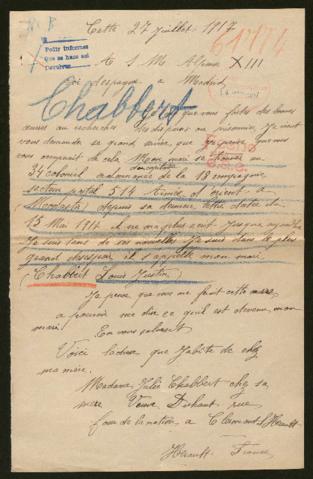 Cette 27 juillet 1917
61774
Pedir informes
que se hace así
Devolver
a S. M. Alfonse XIII
Roi d'espagne a Madrid
Chabbert
que vous faites des bonnes
recherches des disparus ou prisonnier, Je vient
vous demander un grand service, que
vous occupant de cela, Mon mari se trouve au
34 colonial adm de la 18 compagnie
secteur postal 514 armée d'orient a
Monastir, depuis sa lettre datée du
15 Mai 1917 il ne m'a plus ecrit jusque aujourd'hui
Je suis sans de ses nouvelles Je suis dans le plus
grand desespoir il s'appelle mon mari
(Chabbert Louis Justin)
Je pense que vous me fait cette
a pouvoir me dire ce qu'il est devenu, mon
mari
En vous saluant
Voici l'adresse que J'abite de chez
ma mère.
Madame Julie Chabbert chez sa
mère Veuve rue
four de la nation, a Clermont l'Herault
Herault France